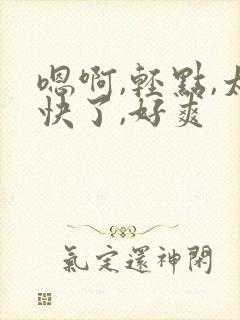 嗯啊,輕點,太
快了,好爽
氣定還神閑